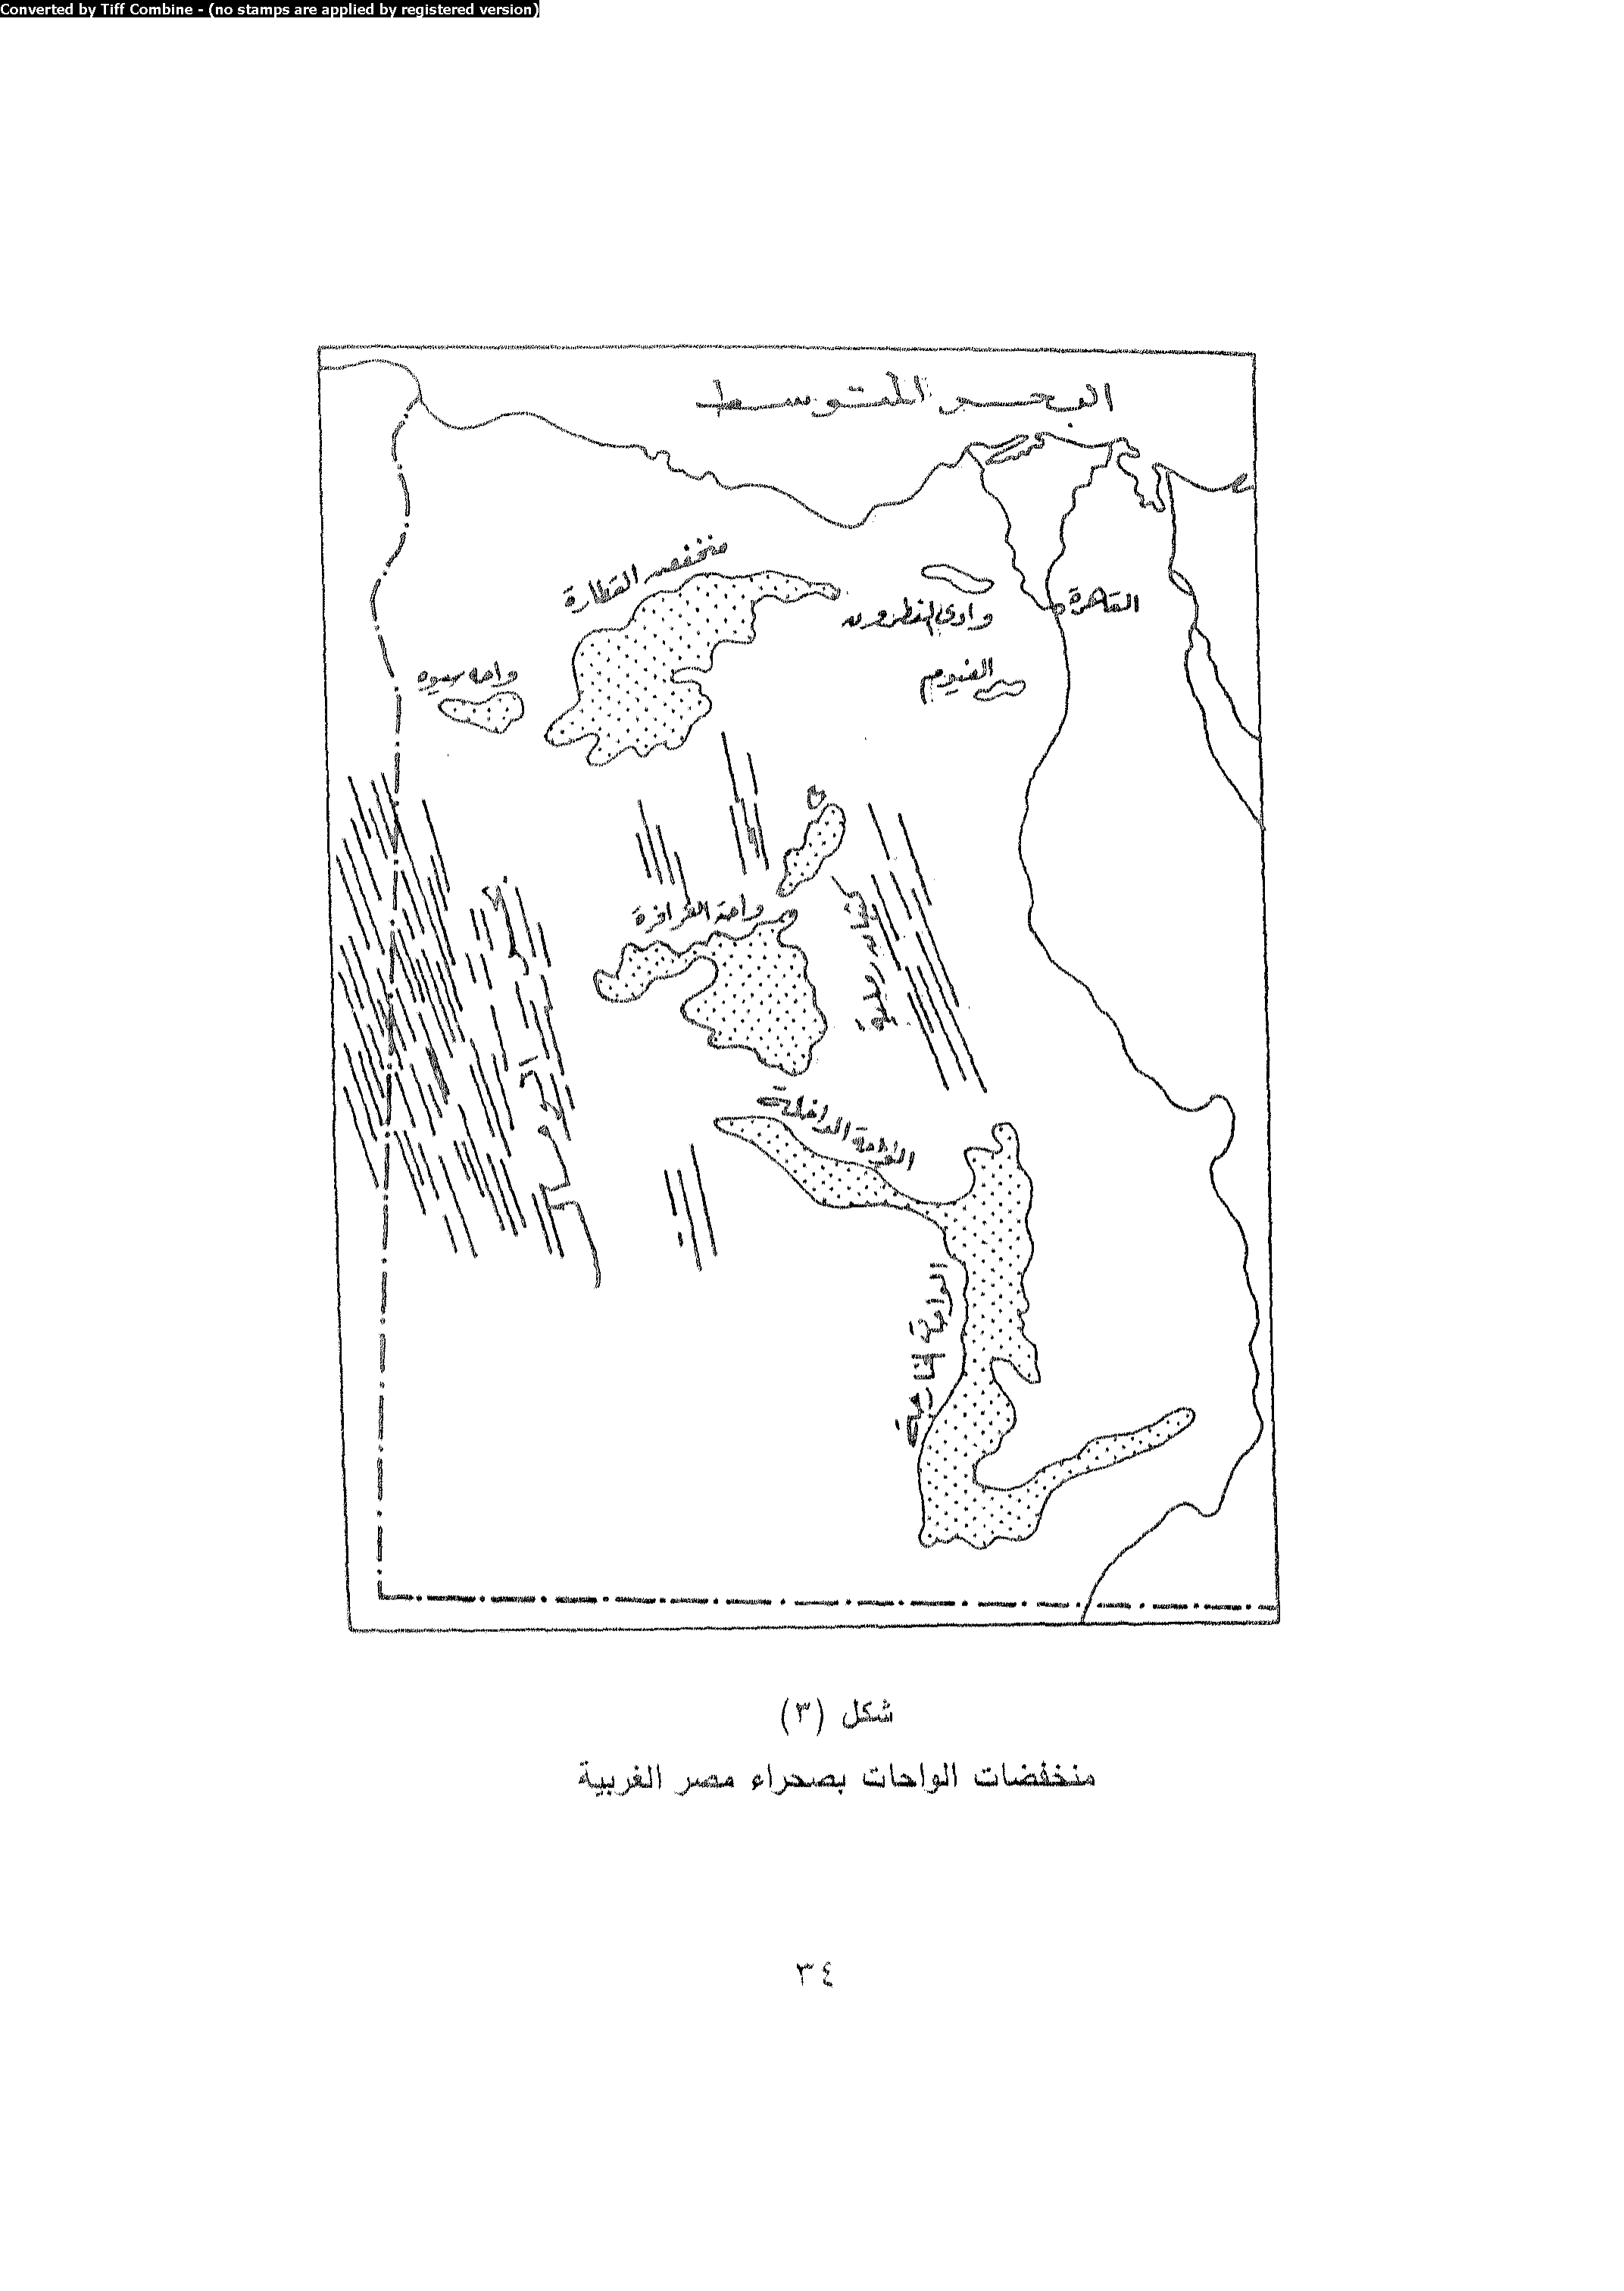 Converted by Tiff Combine - (no stamps are applied by registered version)
البحر المتوسط
منخفض القطارة
وادى النطرون
القاهرة
واحه سيوه
الفيوم
واحة الفرافرة
كثبان رملية
بحر الرمال
الواحة الداخلة
الواحة الخارجة
شكل (٣)
منخفضات الواحات بصحراء مصر الغربية
٣٤